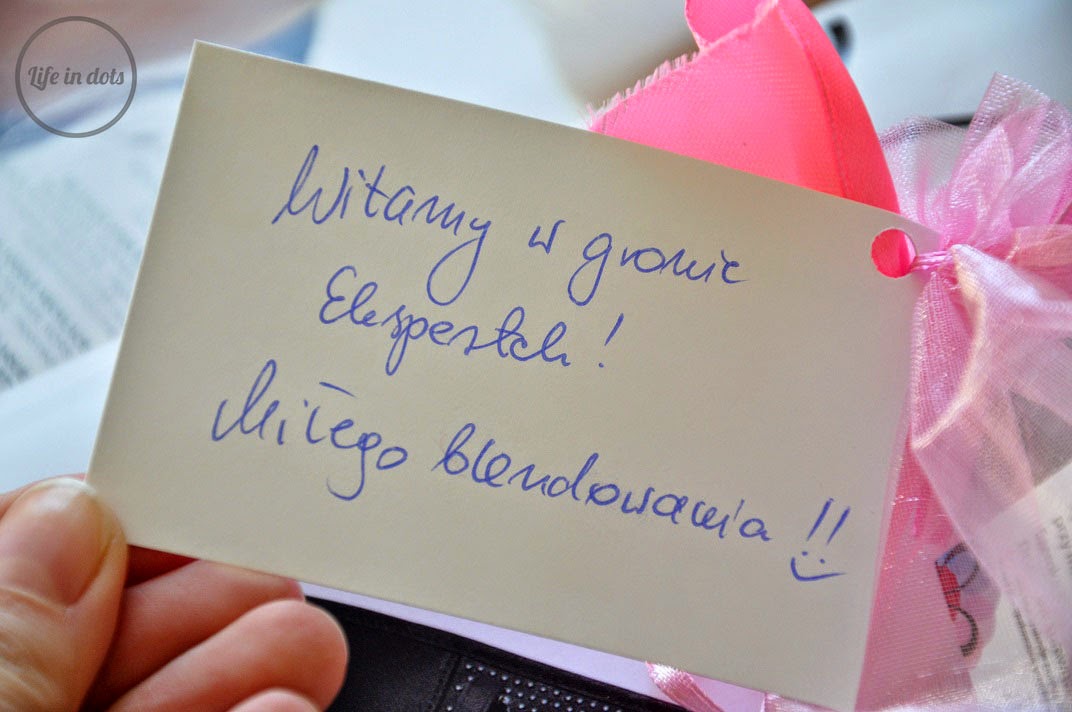 Life in dots
Witamy w gronie
Ekspertek!
Miłego blendowania !!